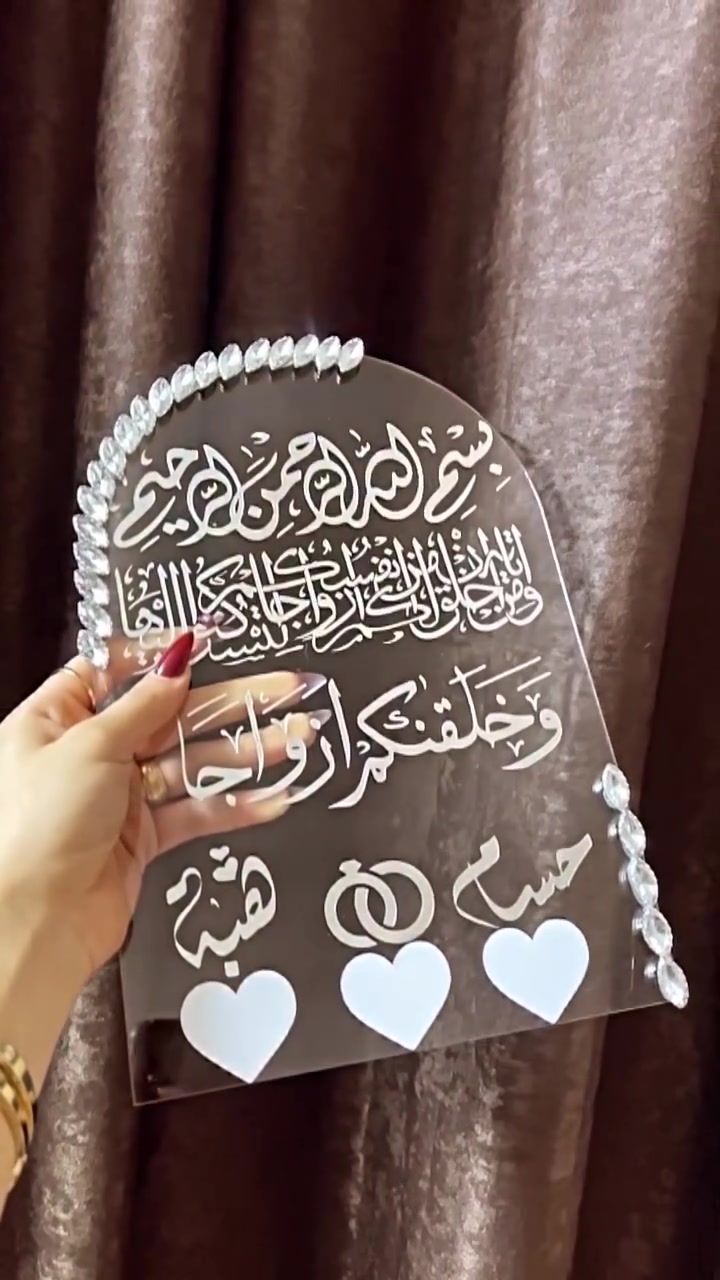 بسم الله الرحمن الرحيم
ومن آياته أن خلق لكم من أنفسكم أزواجا لتسكنوا إليها
وخلقنكم ازواجا
حسام
هبة